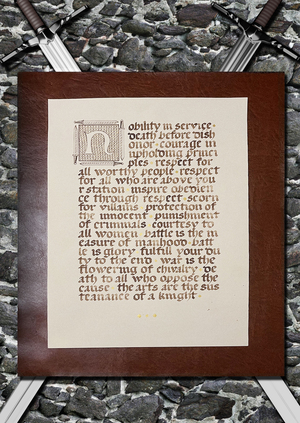 Nobility in service·
death before dish
onor· courage in
upholding princi
ples· respect for
all worthy people· respect
for all who are above you
r station· inspire obedien
ce through respect· scorn
for villains· protection of
the innocent· punishment
of criminals· courtesy to
all women· battle is the m
easure of manhood· batt
le is glory· fulfill your du
ty to the end· war is the
flowering of chivalry· de
ath to all who oppose the
cause· the arts are the sus
tenance of a knight·